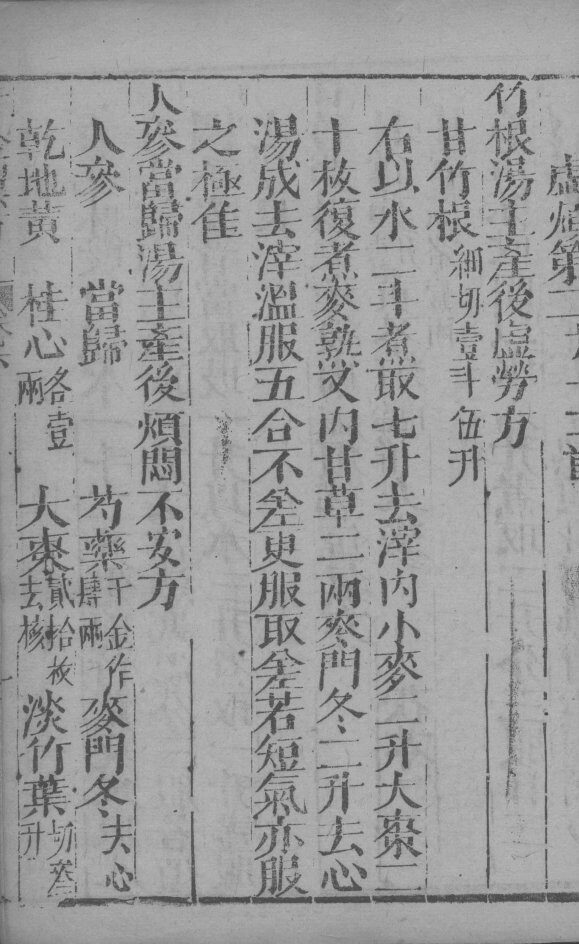 虛煩第二
竹根湯主產後虛勞方
甘竹根細切壹斗伍升
右以水二斗煮取七升去滓內小麥二升大棗二
十枚復煮麥熟又內甘草二兩麥門冬二升去心
湯成去滓溫服五合不差更服取差若短氣亦服
之極佳
人參當歸湯主產後煩悶不安方
人參 當歸 芍藥千金作肆兩 麥門冬去心
乾地黃 桂心各壹兩 大棗貳拾枚去核 淡竹葉切叁升